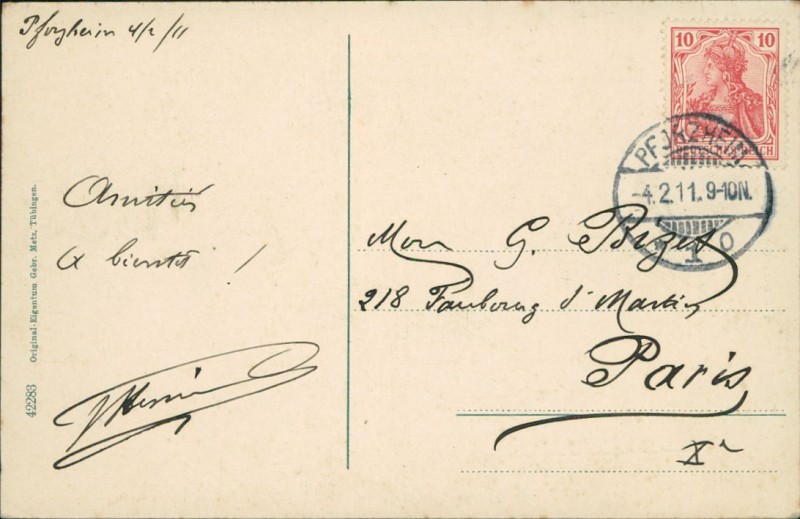 Pforzheim 4/2/11
Amitiés
A bientôt !
Original-Eigentum Gebr. Metz, Tübingen.
42283
10 10
DEUTSCHES REICH
PFORZHEIM
-4.2.11.9-10N.
1 o
Mon G. Bizet
218 Faubourg St Martin
Paris
Xe